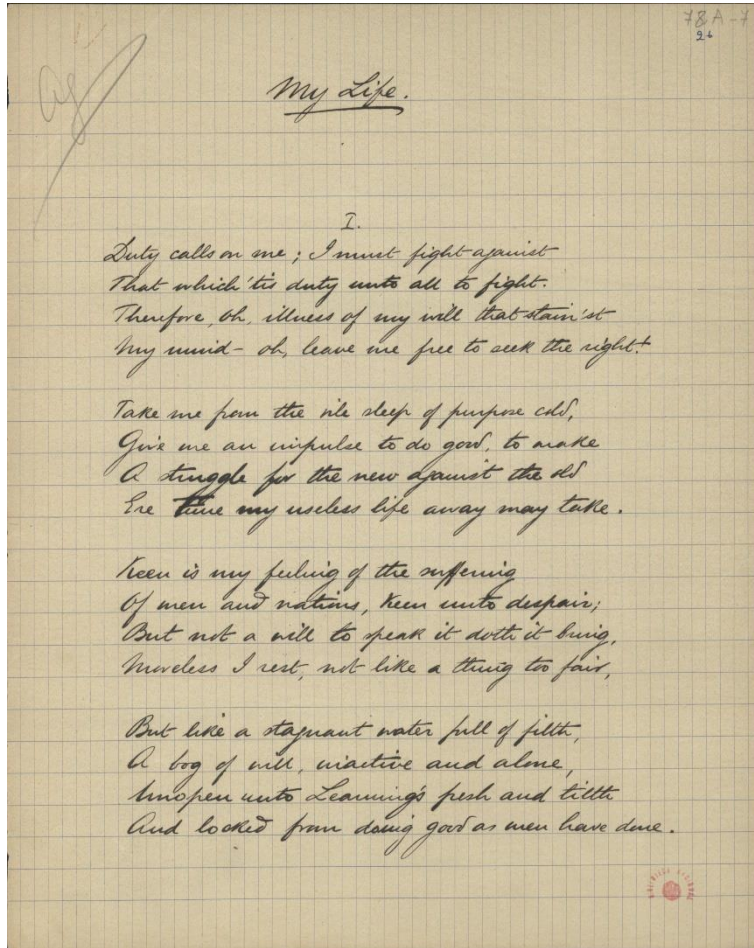 78A-7
26
My Life.
I.
Duty calls on me; I must fight against
That which 'tis duty unto all to fight.
Therefore, oh, illness of my will that stain'st
My mind - oh, leave me free to seek the right!
Take me from the vile sleep of purpose cold,
Give me an impulse to do good, to make
A struggle for the new against the old
Ere time my useless life away may take.
Keen is my feeling of the suffering
Of men and nations, keen unto despair;
But not a will to speak it doth it bring,
Moveless I rest, not like a thing too fair,
But like a stagnant water full of filth,
A bog of will, inactive and alone,
Unopen unto Learning's fresh and tilth
And locked from doing good as men have done.